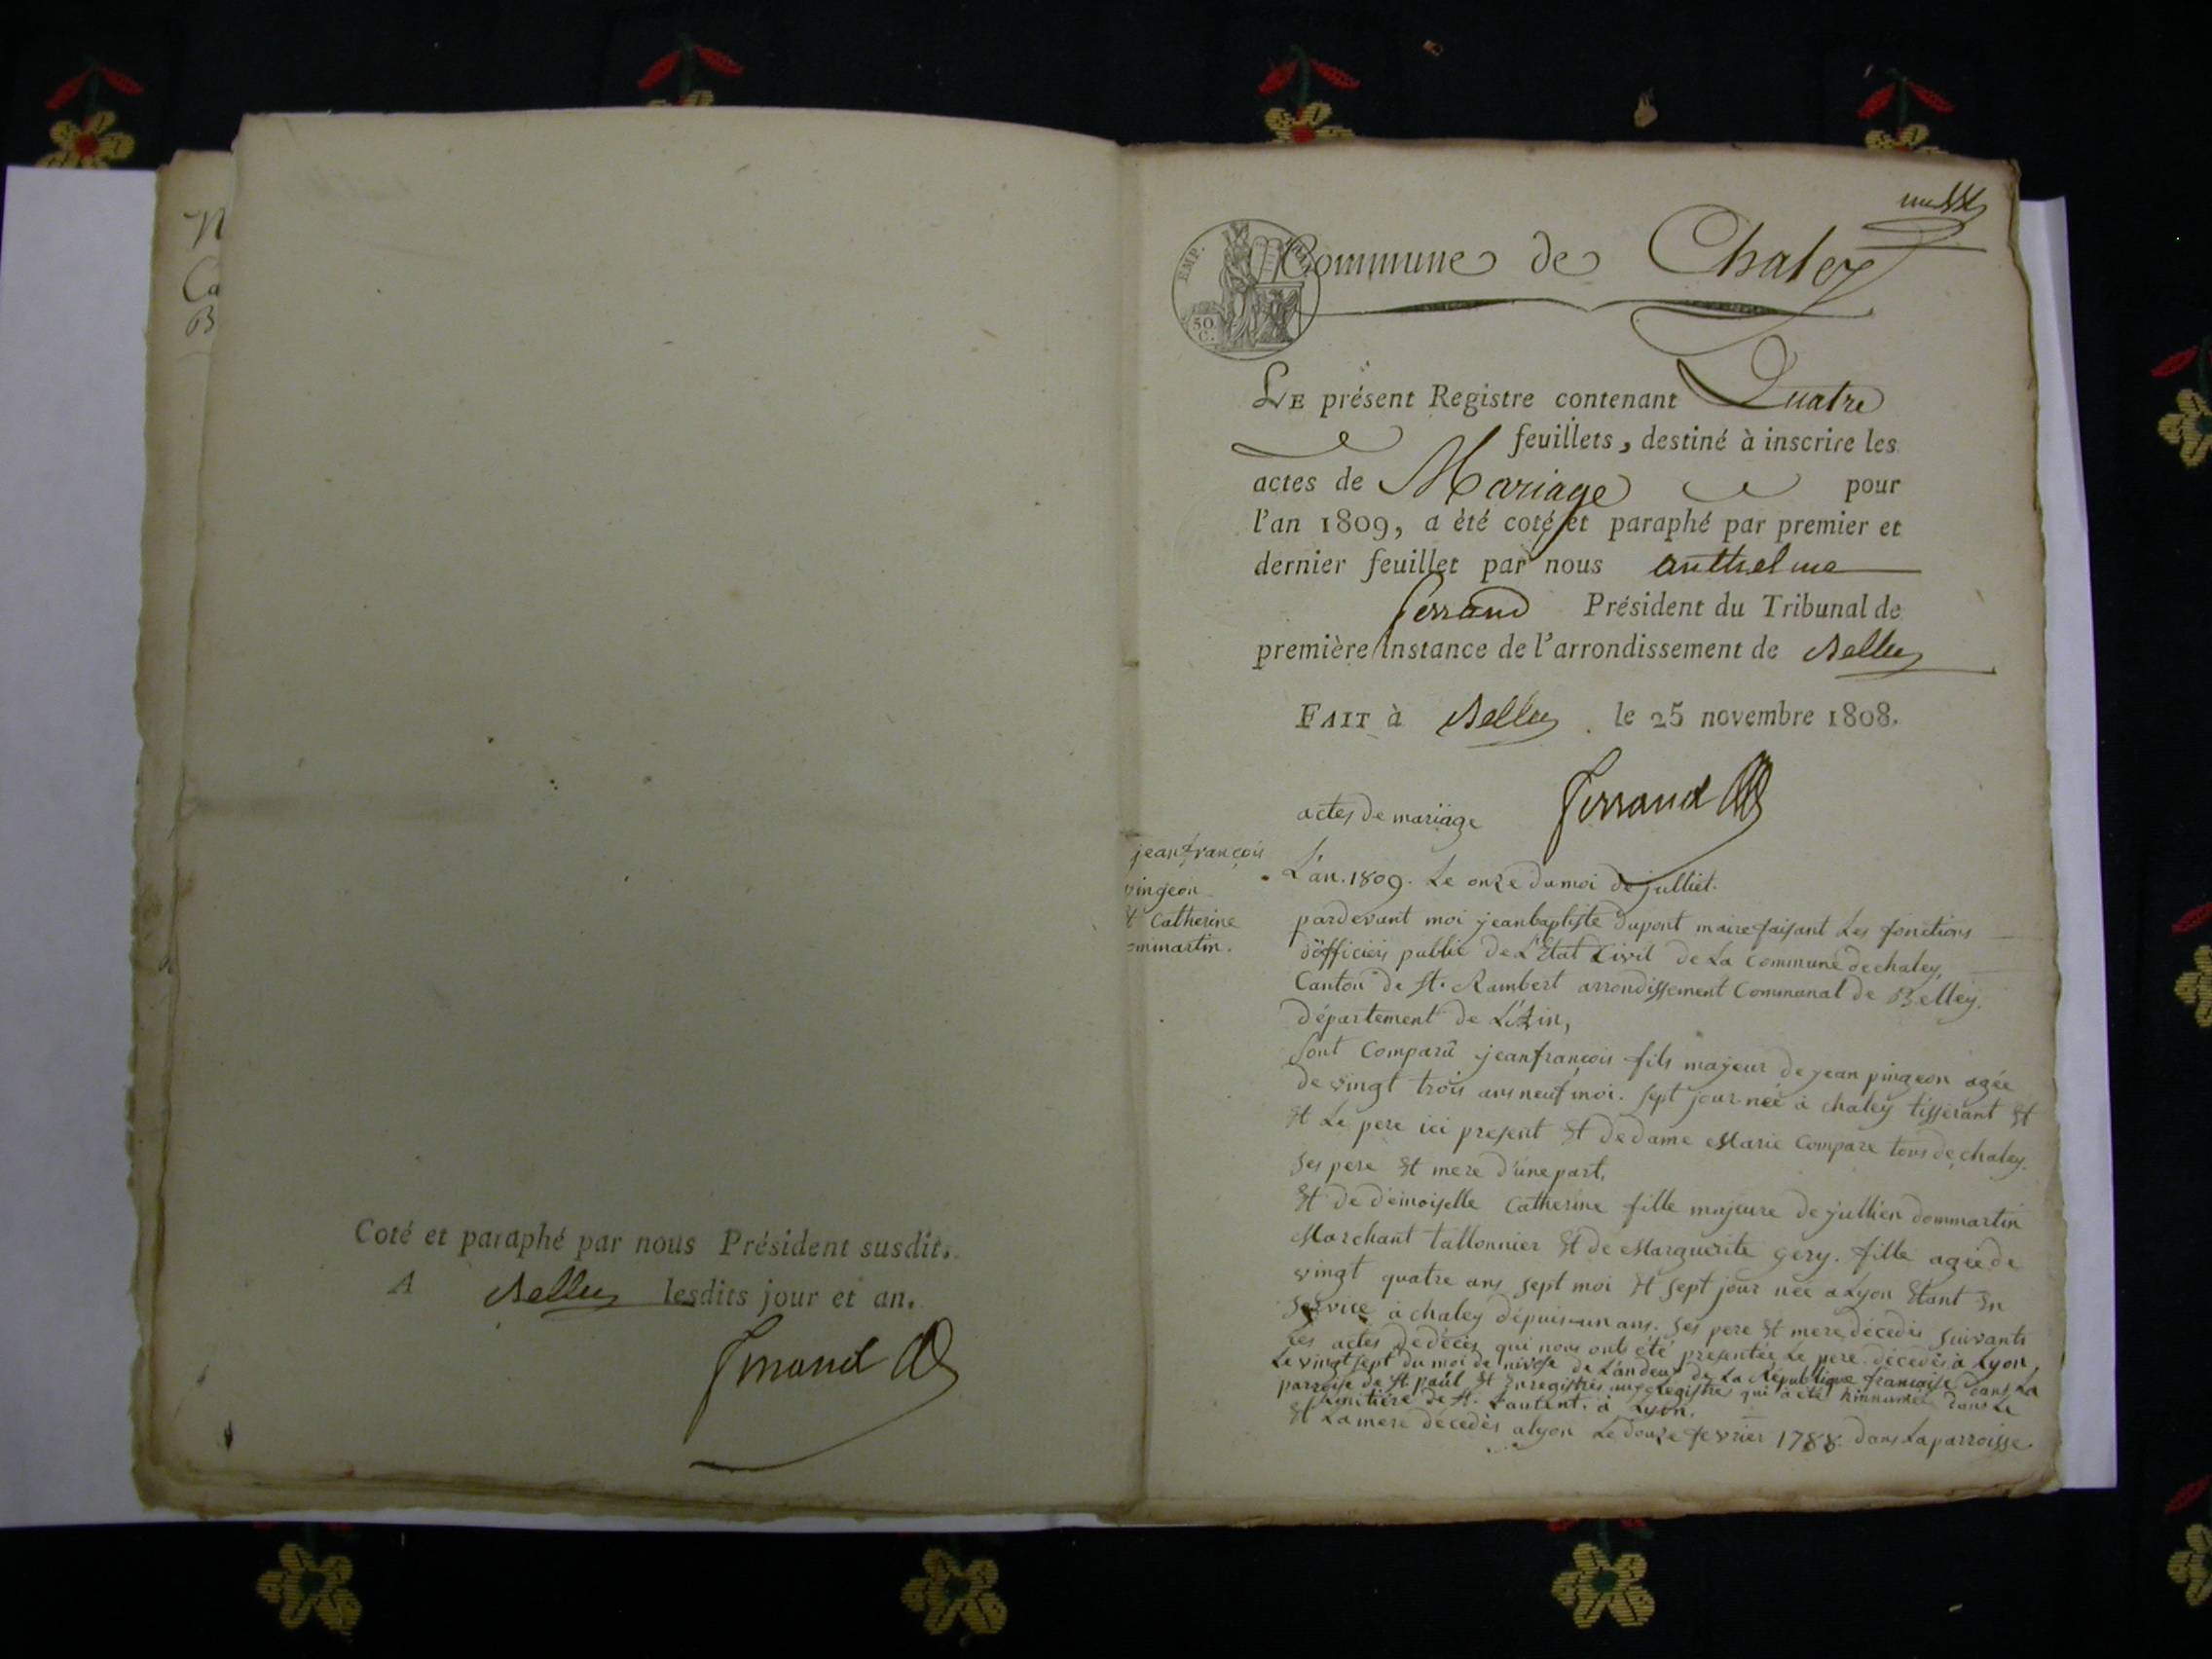 N
Ca
B
Coté et paraphé par nous Président susdit.
A Belley lesdits jour et an.
Ferrand
un
EMP.
50
C.
Commune de Chaley
LE présent Registre contenant Quatre
feuillets, destiné à inscrire les
actes de Mariage pour
l'an 1809, a été coté et paraphé par premier et
dernier feuillet par nous anthelme
ferrand Président du Tribunal de
première Instance de l'arrondissement de Belley
FAIT à Belley le 25 novembre 1808.
Ferrand
actes de mariage
jean françois
pingeon
et Catherine
ommartin.
L'an. 1809. Le onze du moi de julliet.
pardevant moi jeanbaptiste dupont maire faisant Les fonctions
d'officier public de L'Etat Civil de La Commune de chaley,
Canton de St. Rambert arrondissement Communal de Belley.
département de L'Ain,
Sont Comparû jeanfrançois fils majeur de jean pingeon agée
de vingt trois ans neuf moi. Sept jour née à chaley tisserant Et
Et Le pere ici present Et de dame Marie Compare tous de chaley.
Ses pere Et mere d'une part,
Et de demoiselle Catherine fille majeure de jullien dommartin
Marchant tallonnier Et de Marguerite gery. fille agée de
vingt quatre ans sept moi Et sept jour née a Lyon Etant En
Service à chaley dépuis un ans. Ses pere Et mere décedés Suivants
Les actes de décès qui nous onts été presentée, Le pere décedés à Lyon,
Le vingt sept du moi de nivose de L'an deux de La République françoise dans La
parroise de St. paul Et Enregistrés aux Registre qui à été hinnumée dans Le
Simitiére de St. Laurent. à Lyon.
Et La mere décedés a lyon Le douze fevrier 1788. dans La parroisse